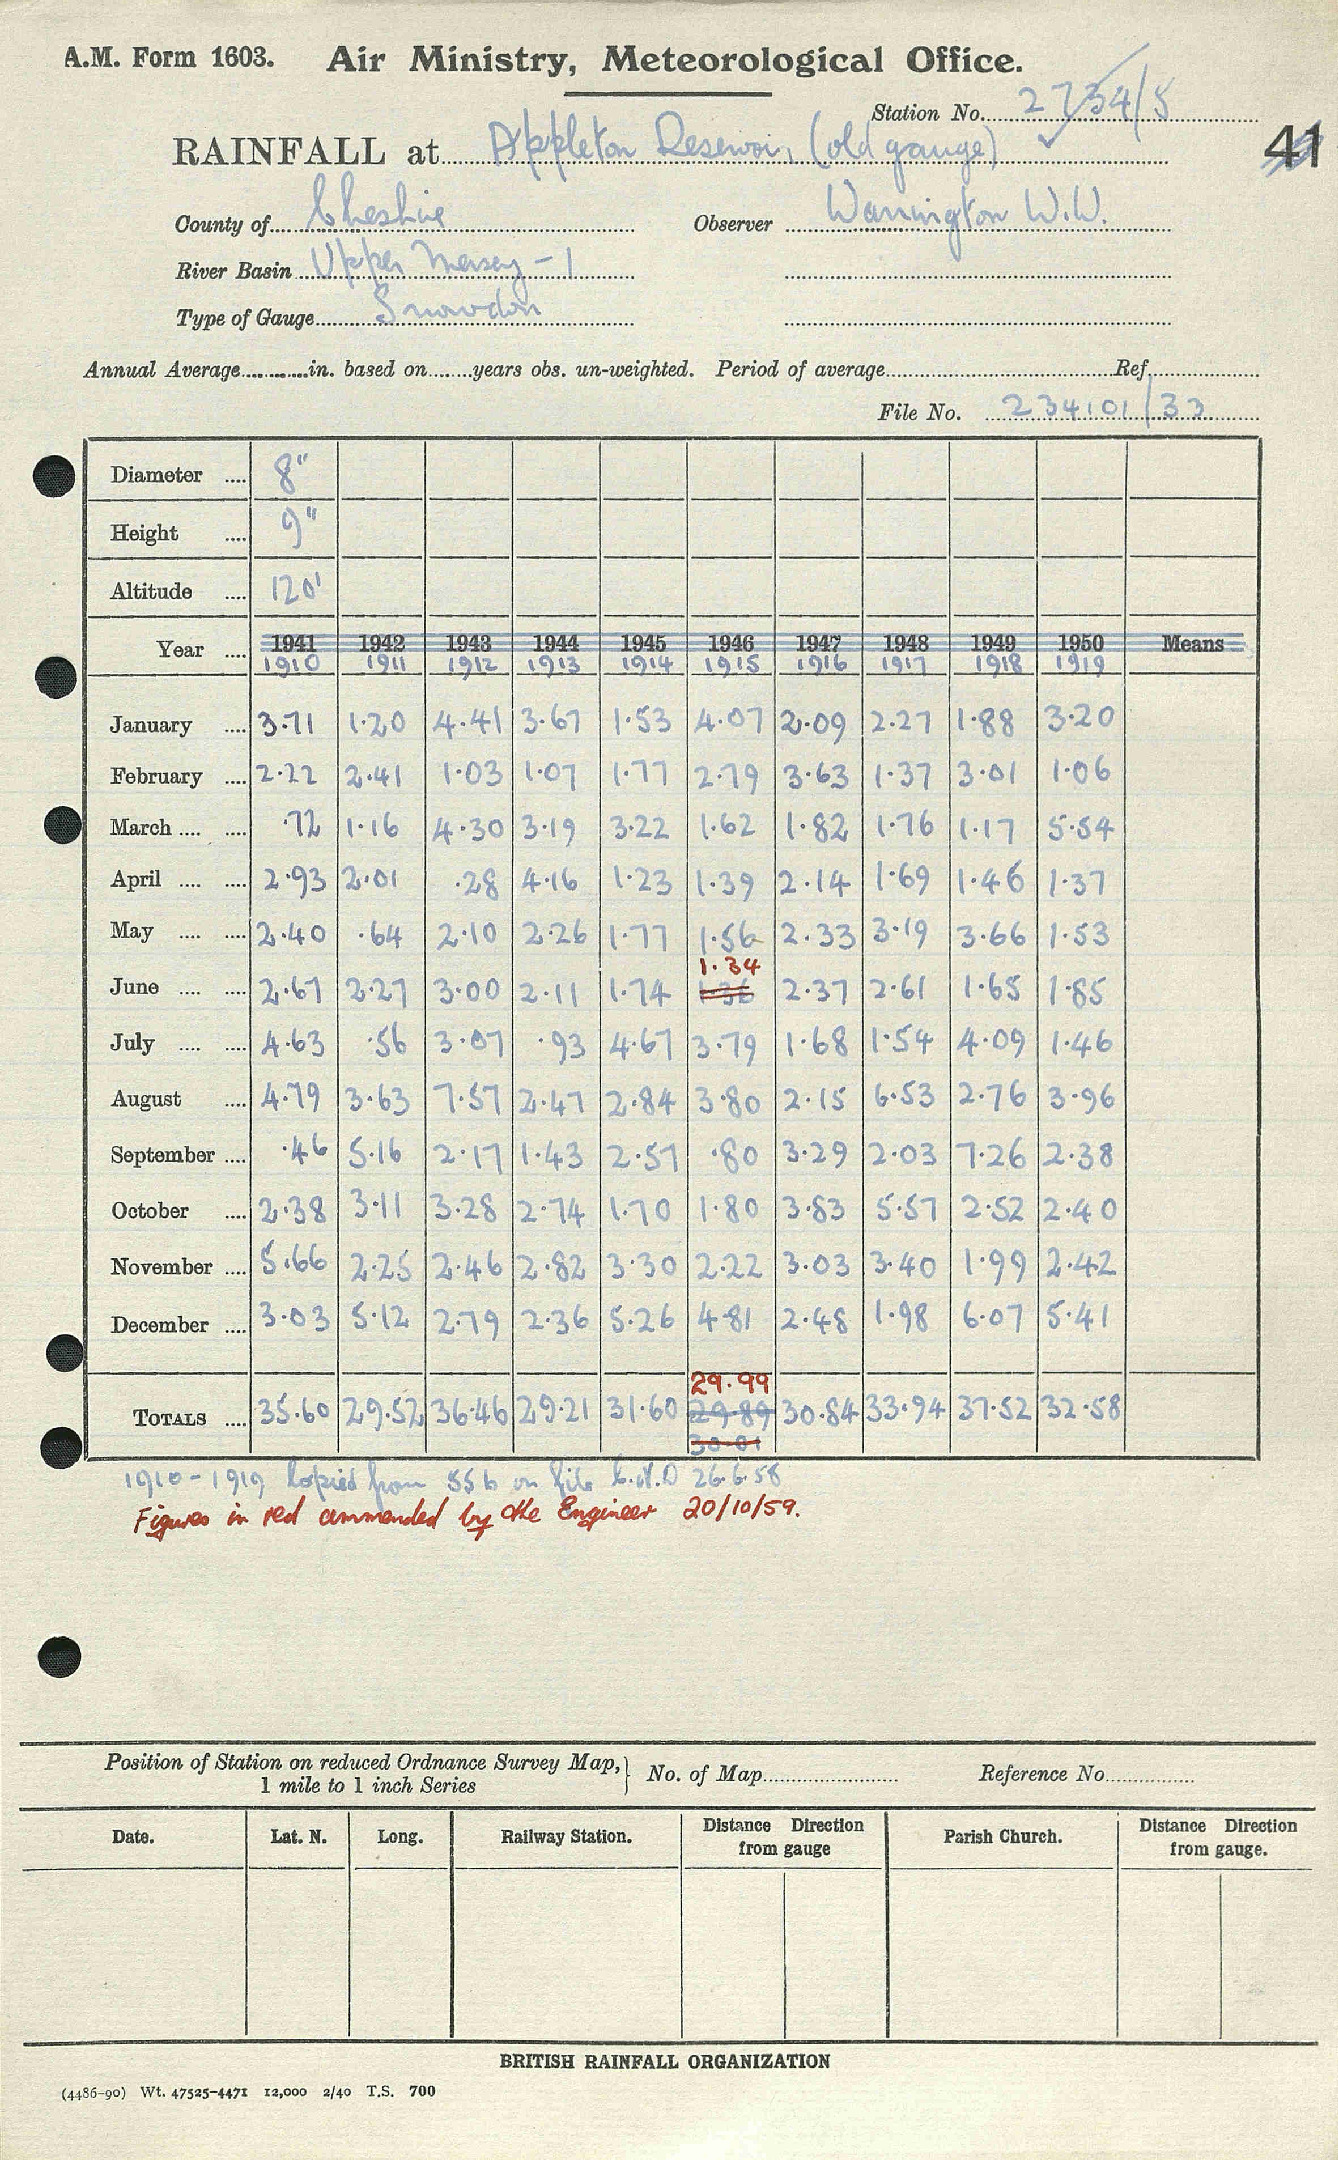 A.M. Form 1603. Air Ministry, Meteorological Office.
Station No. 2734/5
RAINFALL at Appleton Reservoir (old gauge)
41
County of Cheshire Observer Warrington W.W.
River Basin Upper Mersey - 1
Type of Gauge Snowdon
Annual Average in. based on years obs. un-weighted. Period of average Ref.
File No. 234101/33
Diameter .... 8"
Height .... 9"
Altitude .... 120'
Year .... 1941 1942 1943 1944 1945 1946 1947 1948 1949 1950 Means
1910 1911 1912 1913 1914 1915 1916 1917 1918 1919
January .... 3.71 1.20 4.41 3.67 1.53 4.07 2.09 2.27 1.88 3.20
February .... 2.22 2.41 1.03 1.07 1.77 2.79 3.63 1.37 3.01 1.06
March .... .... .72 1.16 4.30 3.19 3.22 1.62 1.82 1.76 1.17 5.54
April .... .... 2.93 2.01 .28 4.16 1.23 1.39 2.14 1.69 1.46 1.37
May .... .... 2.40 .64 2.10 2.26 1.77 1.56 2.33 3.19 3.66 1.53
1.34
June .... .... 2.67 2.27 3.00 2.11 1.74 1.36 2.37 2.61 1.65 1.85
July .... .... 4.63 .56 3.07 .93 4.67 3.79 1.68 1.54 4.09 1.46
August .... 4.79 3.63 7.57 2.47 2.84 3.80 2.15 6.53 2.76 3.96
September .... .46 5.16 2.17 1.43 2.57 .80 3.29 2.03 7.26 2.38
October .... 2.38 3.11 3.28 2.74 1.70 1.80 3.83 5.57 2.52 2.40
November .... 5.66 2.25 2.46 2.82 3.30 2.22 3.03 3.40 1.99 2.42
December .... 3.03 5.12 2.79 2.36 5.26 4.81 2.48 1.98 6.07 5.41
29.99
TOTALS .... 35.60 29.52 36.46 29.21 31.60 29.89 30.84 33.94 37.52 32.58
30.01
1910 - 1919 Copied from SSb on file 26.6.58
Figures in red ammended by the Engineer 20/10/59.
Position of Station on reduced Ordnance Survey Map, } No. of Map Reference No.
1 mile to 1 inch Series
Date. Lat. N. Long. Railway Station. Distance Direction from gauge Parish Church. Distance Direction from gauge.
BRITISH RAINFALL ORGANIZATION
(4486-90) Wt. 47525-4471 12,000 2/40 T.S. 700